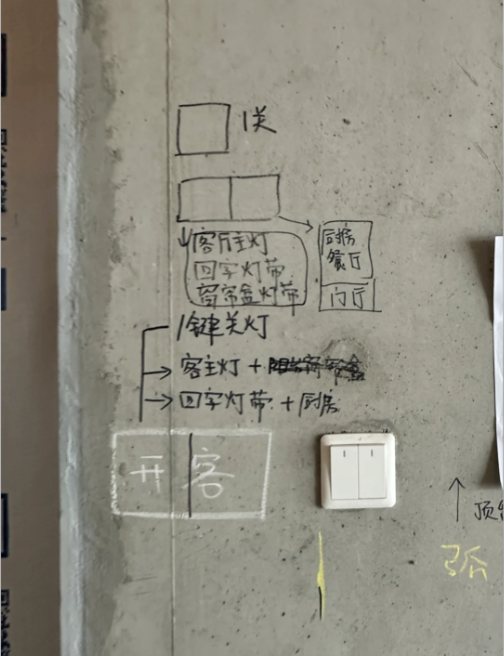 1关
客厅主灯
回字灯带
窗帘盒灯带
厨房
餐厅
门厅
1键关灯
客主灯+
回字灯带+厨房
开 客
顶
弧